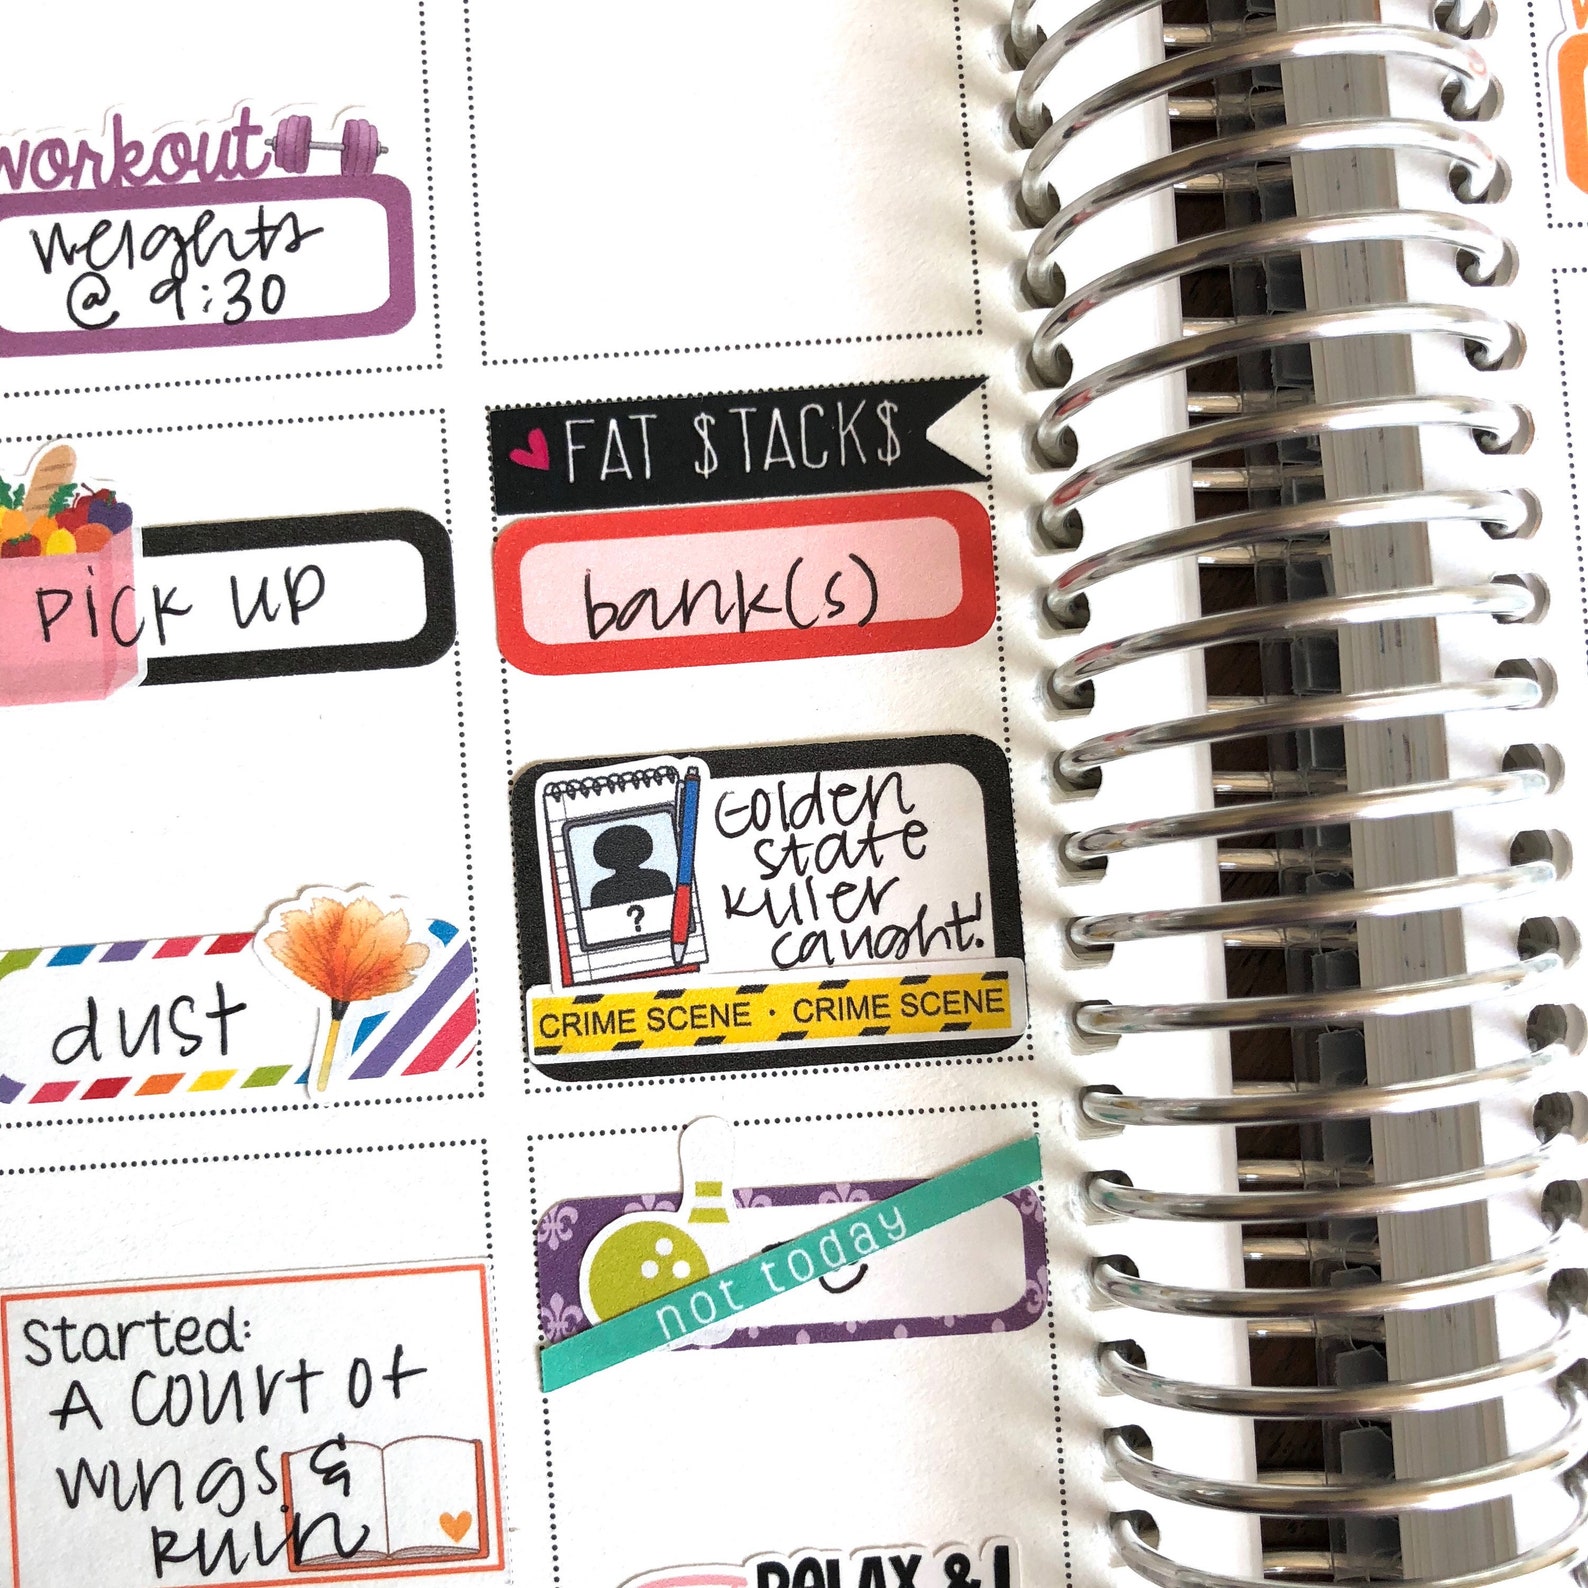 workout
weights
@ 9:30
pick up
dust
Started:
A Court of
wings &
Ruin
FAT $TACK$
bank(s)
Golden
state
killer
caught!
?
CRIME SCENE · CRIME SCENE
not today
RELAX &